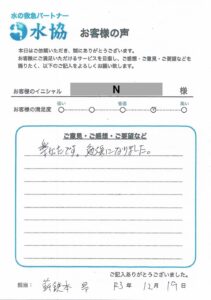 水の救急パートナー
水協 お客様の声
本日はご依頼いただき、誠にありがとうございます。
お客様にご満足いただけるサービスを目指し、ご感想・ご意見・ご要望などを
賜りたく、以下のご記入をよろしくお願い致します。
お客様のイニシャル N 様
低い 普通 高い
お客様の満足度
ご意見・ご感想・ご要望など
です。勉強になりました。
ご記入ありがとうございました。
担当: R3年 12月 19日